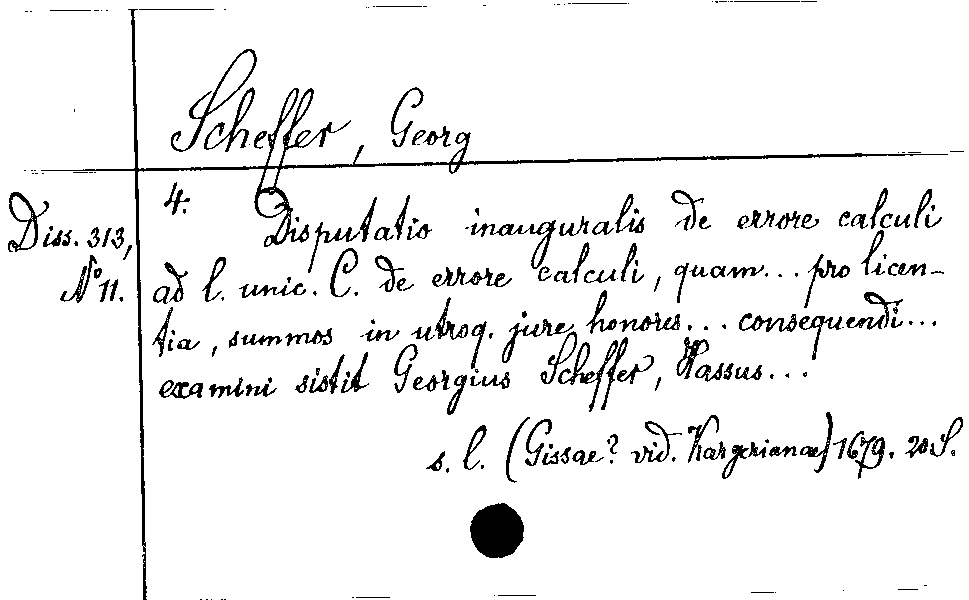 Scheffer, Georg
4.
Diss. 313,
N° 11.
Disputatio inauguralis de errore calculi
ad l. unic. C. de errore calculi, quam... pro licen-
tia, summos in utroq. jure honores... consequendi...
examini sistit Georgius Scheffer, Hassus...
s. l. (Gissae? vid. Kargerianae) 1679. 20 S.